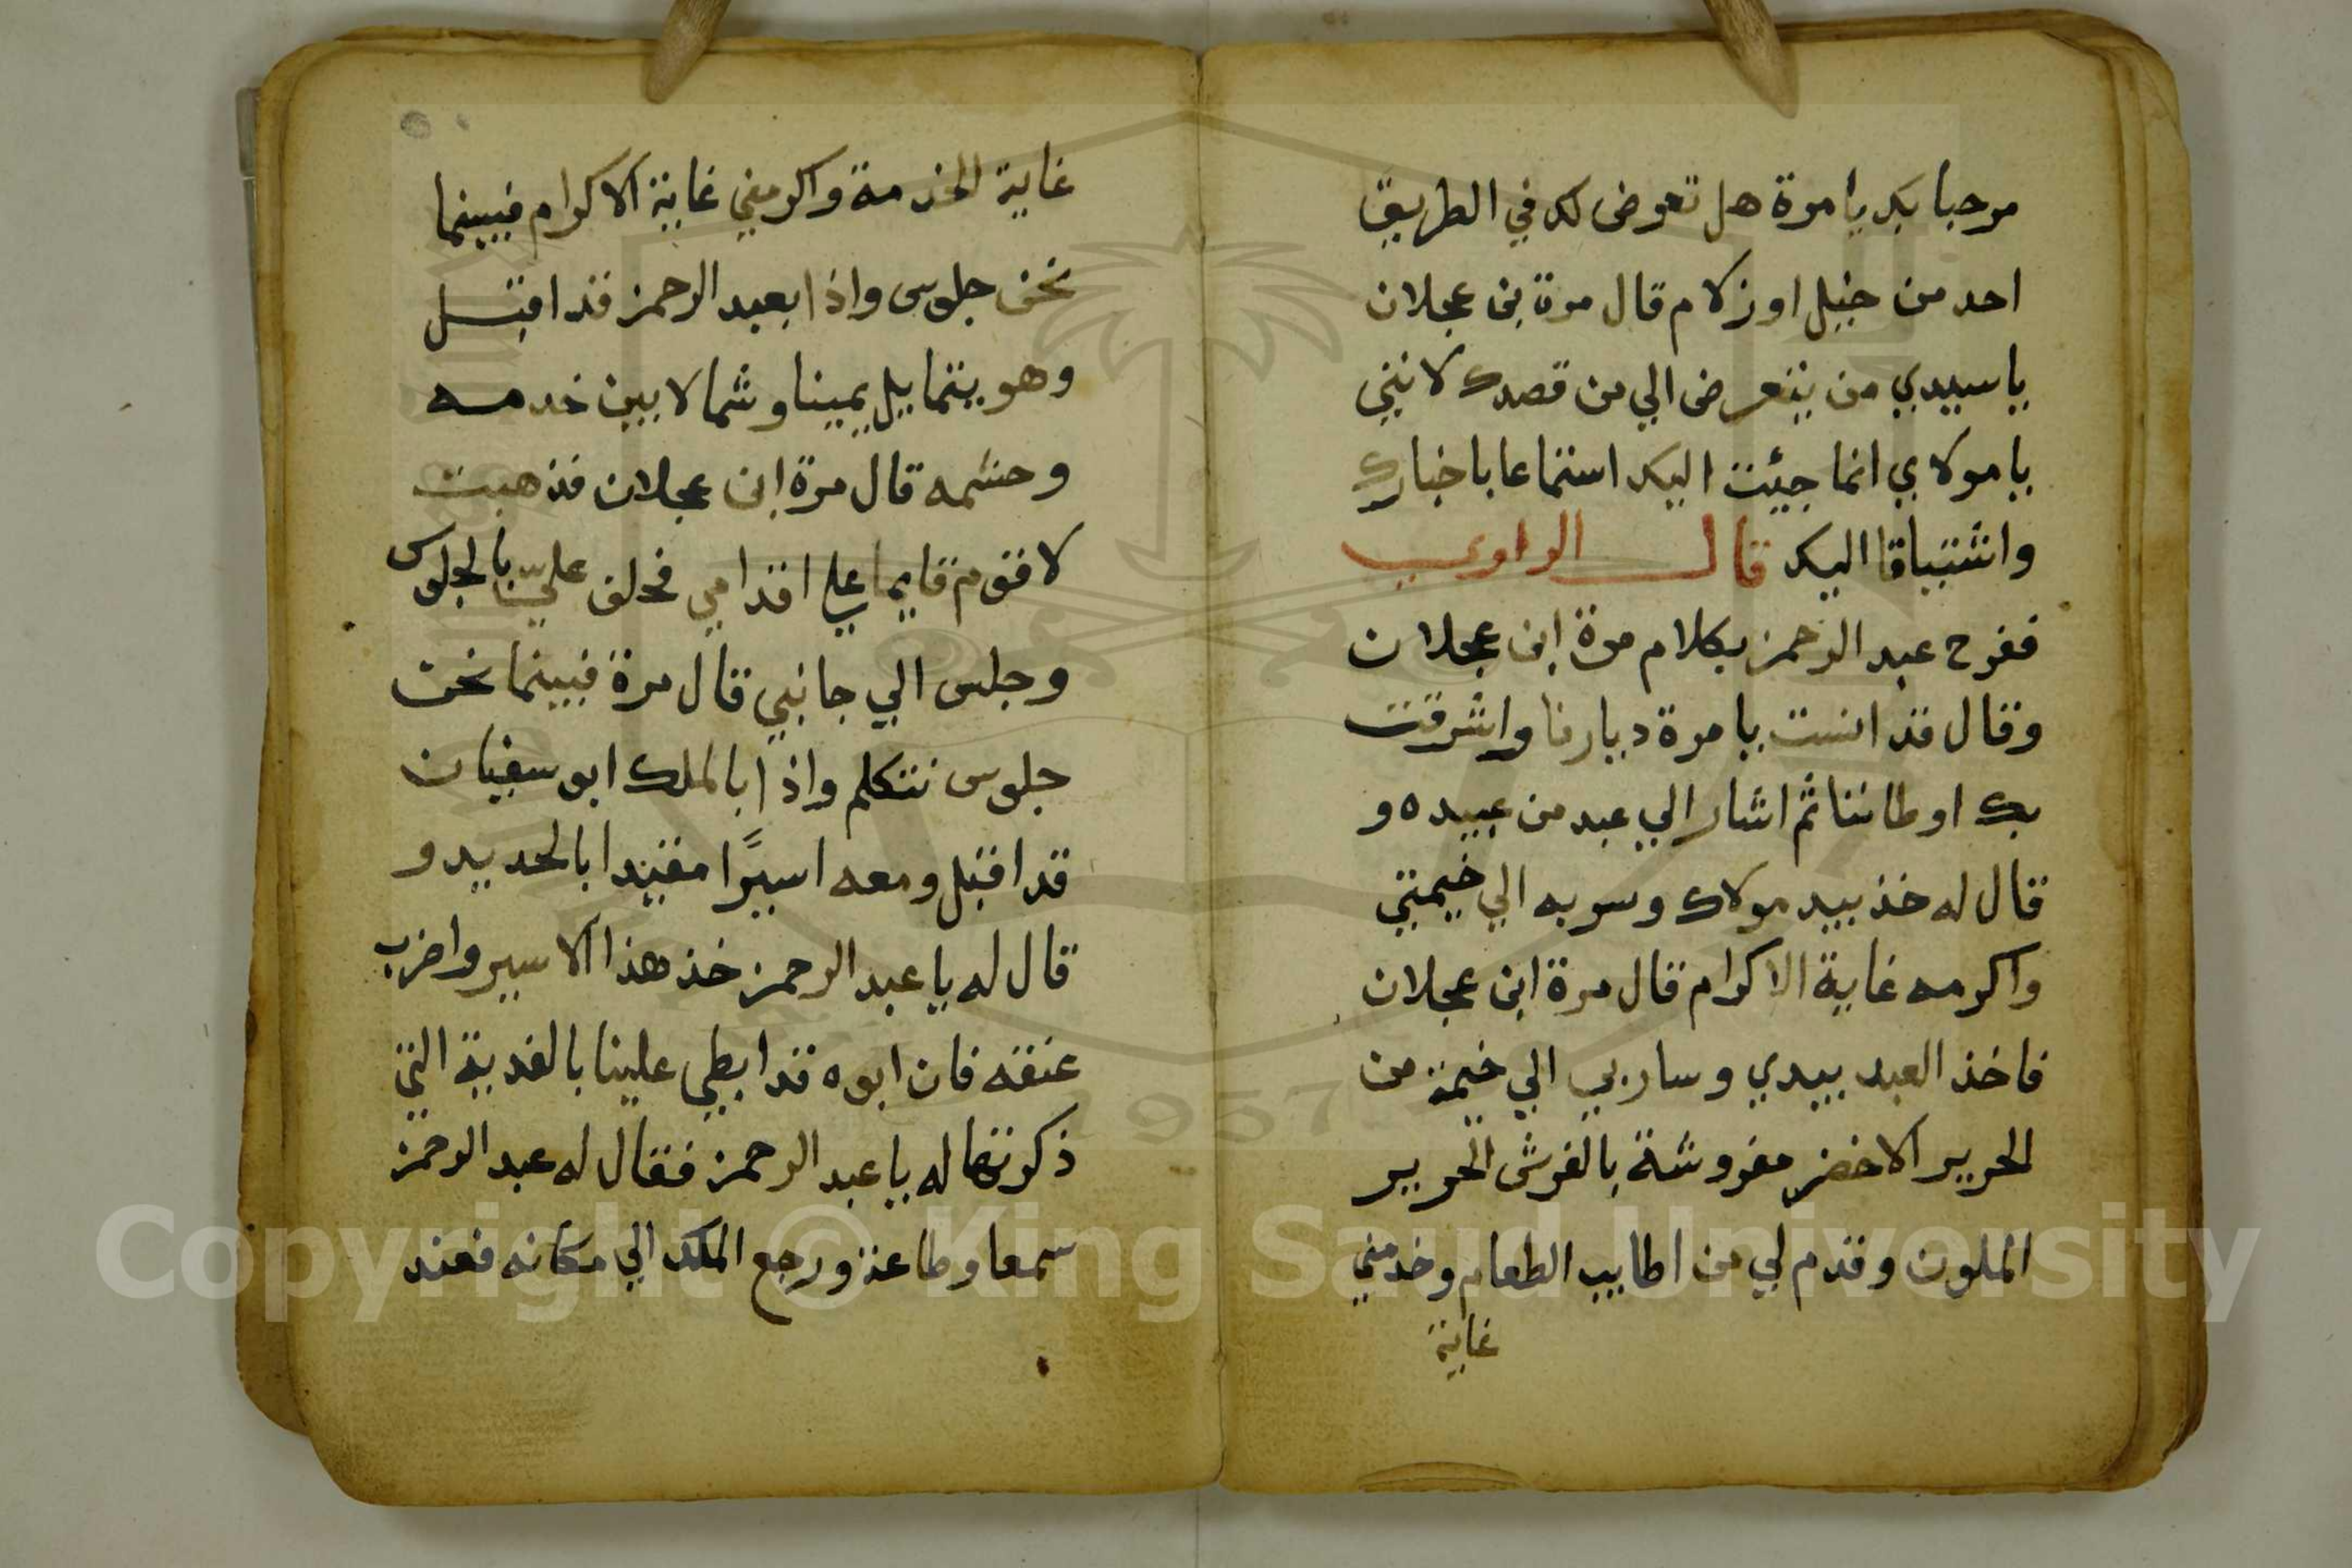 مرحبا بك يا مرة هل تعرض لك في الطريق
احد من خيل او زلام قال مرة بن عجلان
يا سيدي من يتعرض الي من قصدك لانني
يا مولاي انما جيئت اليك استماعا باخبارك
واشتياقا اليك قال الراوي
ففرح عبد الرحمن بكلام مرة ابن عجلان
وقال قد انست يا مرة ديارنا واشرقت
بك اوطاننا ثم اشار الي عبد من عبيده و
قال له خذ بيد مولاك وسر به الي خيمتي
واكرمه غاية الاكرام قال مرة ابن عجلان
فاخذ العبد بيدي وسار بي الي خيمة من
الحرير الاخضر مفروشة بالفرش الحرير
الملون وقدم لي من اطايب الطعام وخدمني
غاية
غاية الخدمة واكرمني غاية الاكرام فبينما
نحن جلوس واذا بعبد الرحمن قد اقبل
وهو يتمايل يمينا وشمالا بين خدمه
وحشمه قال مرة ابن عجلان فذهبت
لاقوم قايما علي اقدامي فحلف عليّ بالجلوس
وجلس الي جانبي قال مرة فبينما نحن
جلوس نتكلم واذا بالملك ابو سفيان
قد اقبل ومعه اسيرًا مقيدا بالحديد و
قال له يا عبد الرحمن خذ هذا الاسير واضرب
عنقه فان ابوه قد ابطي علينا بالفدية التي
ذكرتها له يا عبد الرحمن فقال له عبد الرحمن
سمعا وطاعة ورجع الملك الي مكانه فعند
Copyright © King Saud University
1957